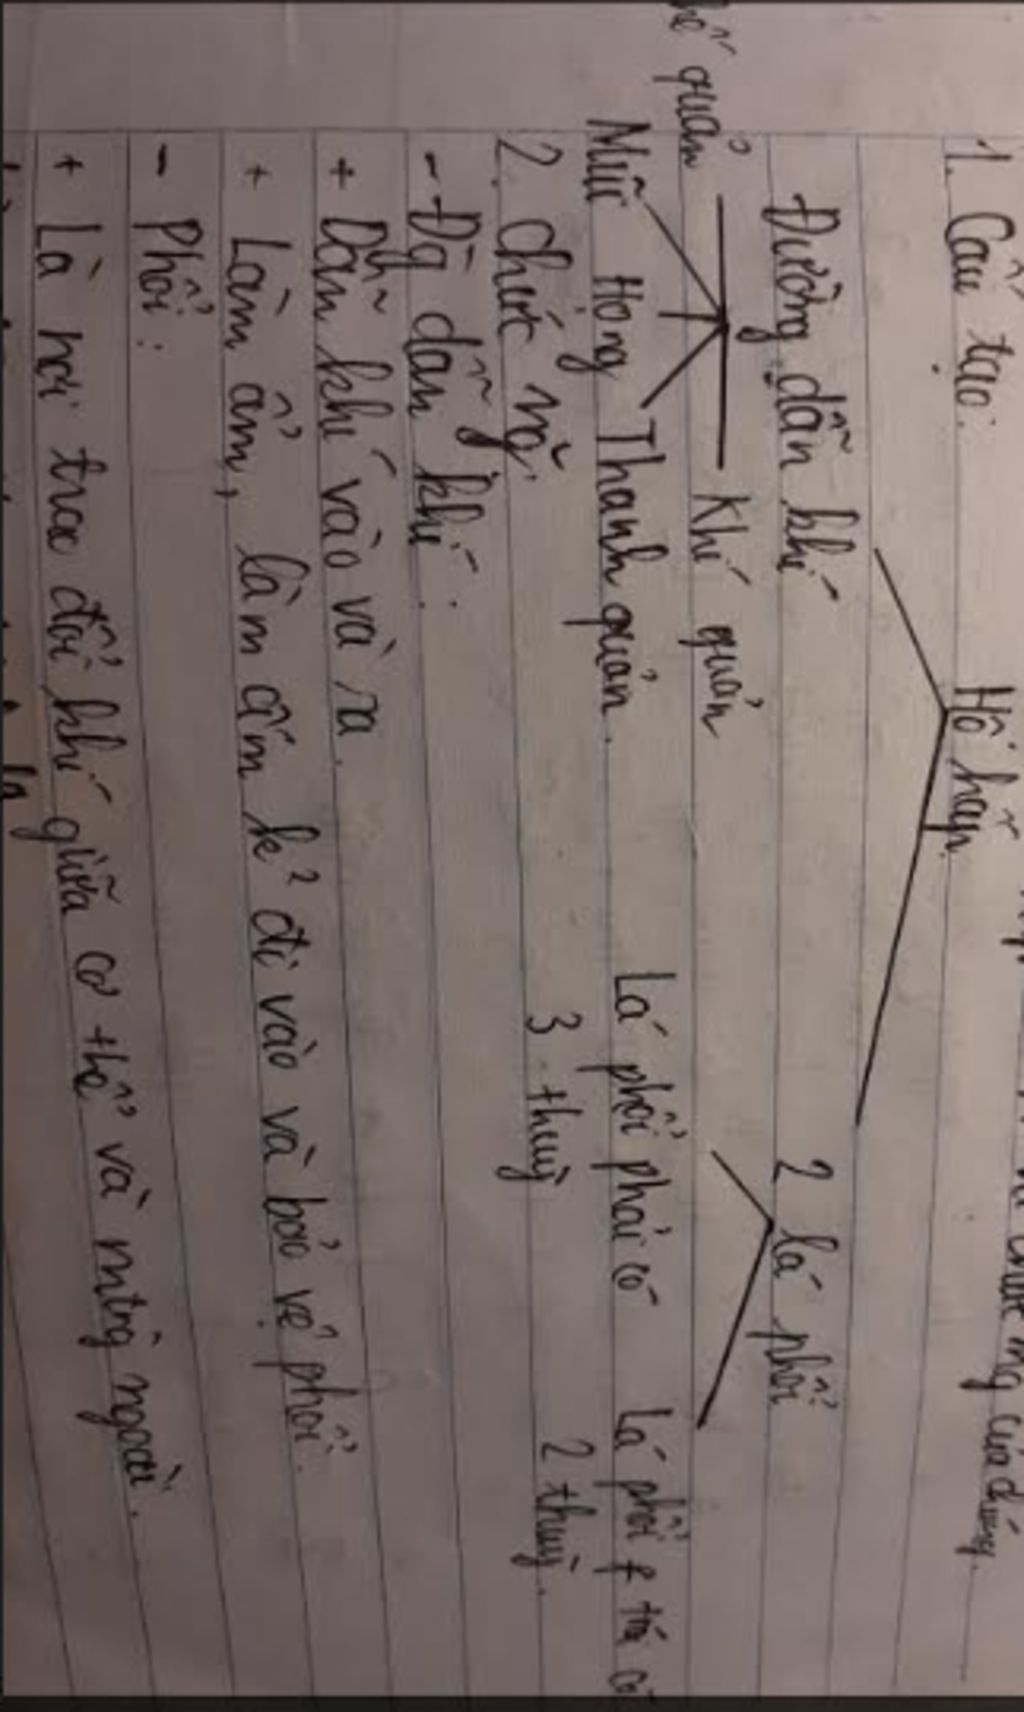 của chúng.
1. Cấu tạo: Hô hấp.
Đường dẫn khí 2 lá phổi
quản Khí quản
Mũi Họng Thanh quản. Lá phổi phải có Lá phổi trái có
2. Chức nğ. 3 thuỳ 2 thuỳ.
- Đg dẫn khí:
+ Dẫn khí vào và ra.
+ Làm ẩm, làm ấm k² đi vào và bảo vệ phổi.
- Phổi:
+ Là nơi trao đổi khí giữa cơ thể và mtrğ ngoài.